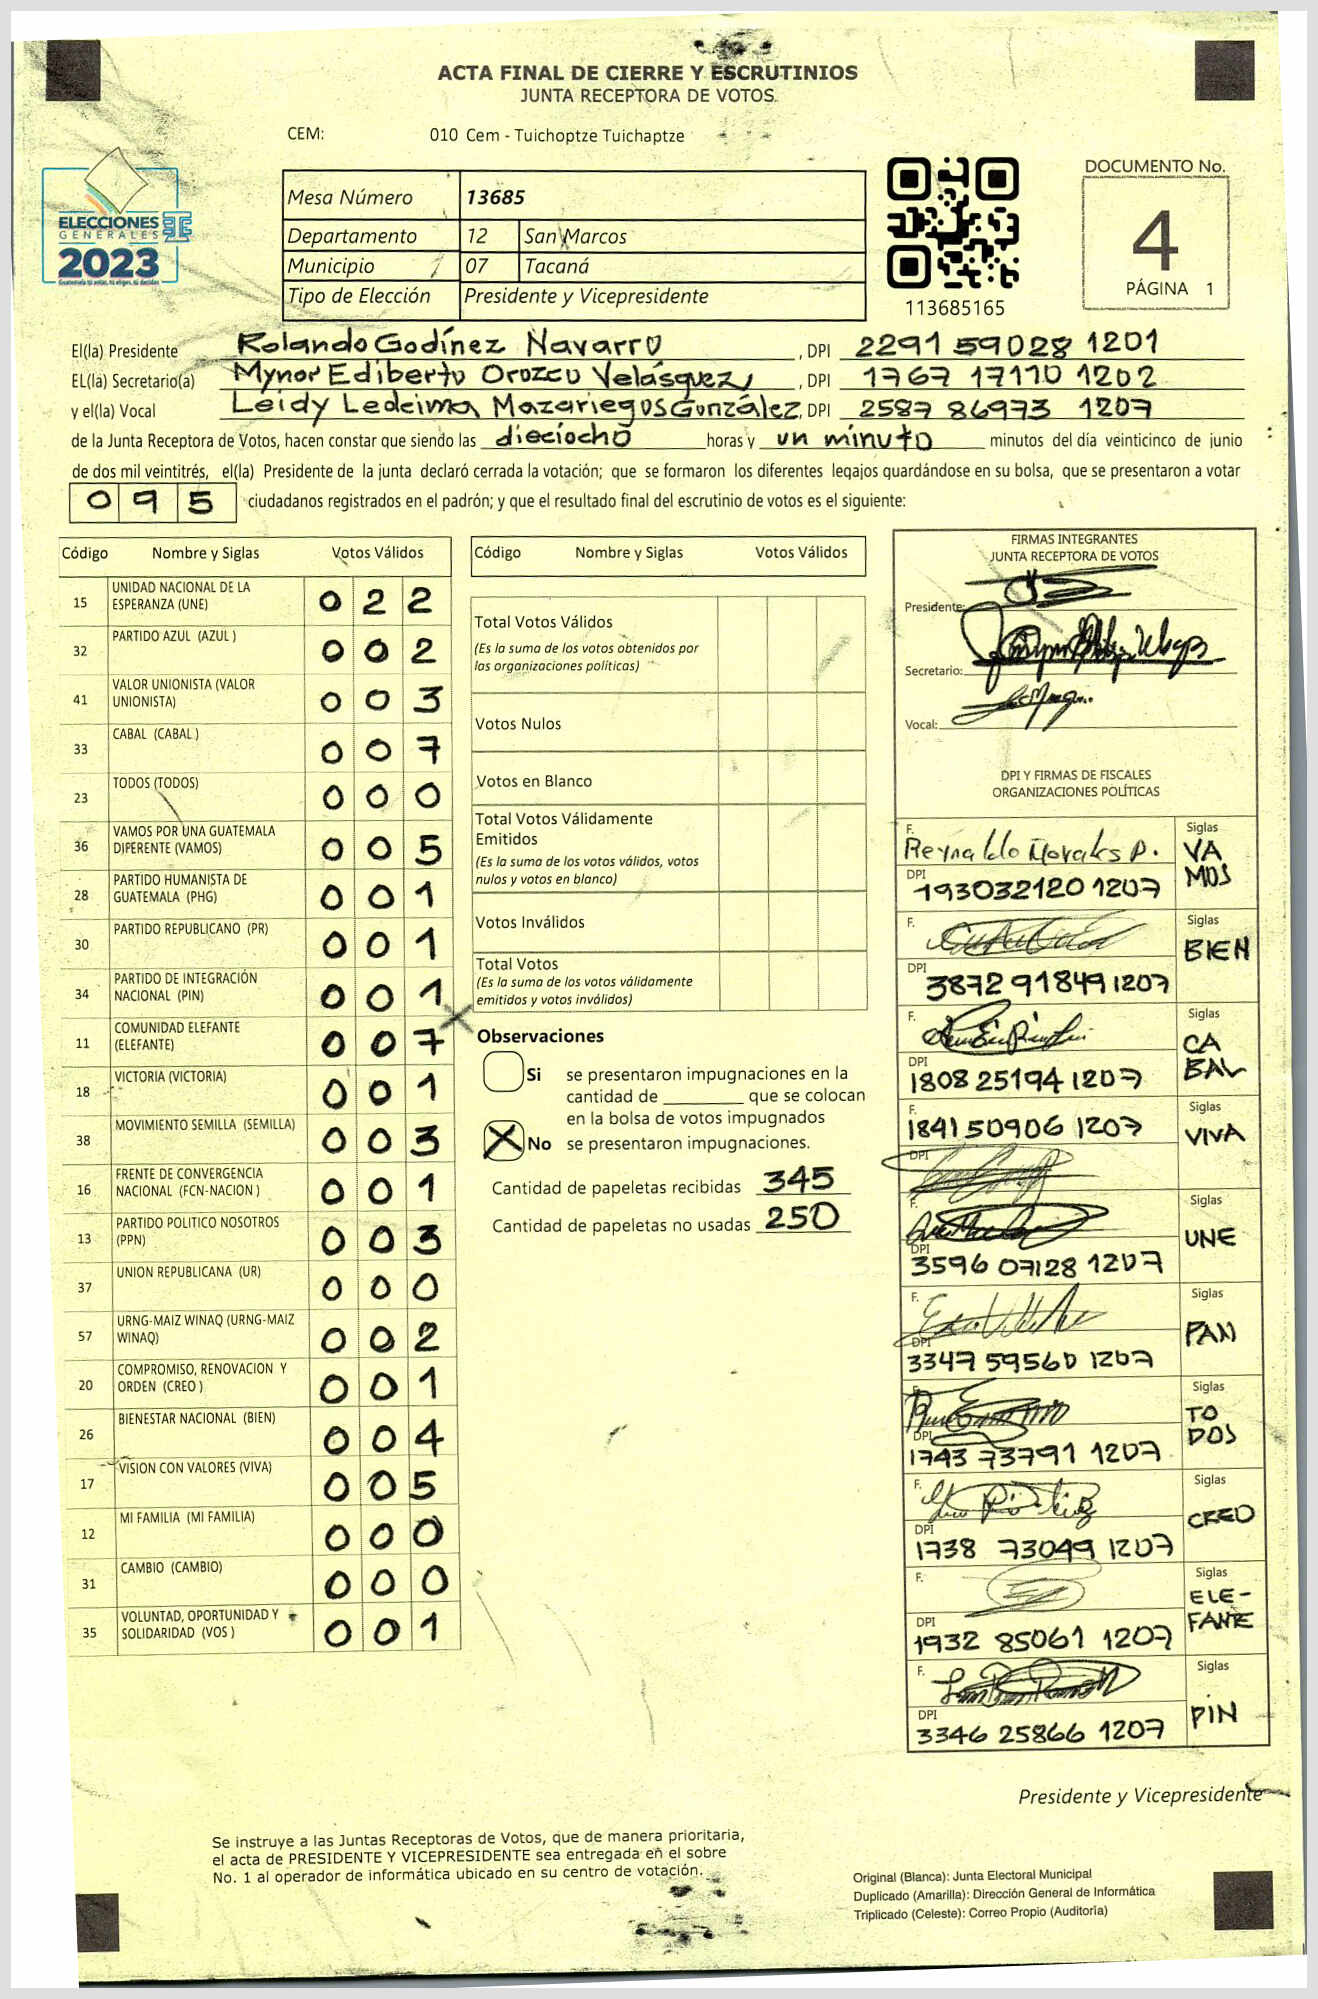 ACTA FINAL DE CIERRE Y ESCRUTINIOS
JUNTA RECEPTORA DE VOTOS
CEM: 010 Cem - Tuichoptze Tuichaptze
ELECCIONES
GENERALES
2023
Mesa Número 13685
Departamento 12 San Marcos
Municipio 07 Tacaná
Tipo de Elección Presidente y Vicepresidente
113685165
DOCUMENTO No.
4
PÁGINA 1
El(la) Presidente Rolando Godínez Navarro, DPI 2291 59028 1201
EL(la) Secretario(a) Mynor Ediberto Orozco Velásquez, DPI 1767 17110 1202
y el(la) Vocal Leidy Ledeima Mazariegos González, DPI 2587 86973 1207
de la Junta Receptora de Votos, hacen constar que siendo las dieciocho horas y un minuto minutos del día veinticinco de junio
de dos mil veintitrés, el(la) Presidente de la junta declaró cerrada la votación; que se formaron los diferentes legajos guardándose en su bolsa, que se presentaron a votar
095 ciudadanos registrados en el padrón; y que el resultado final del escrutinio de votos es el siguiente:
Código Nombre y Siglas Votos Válidos
15 UNIDAD NACIONAL DE LA ESPERANZA (UNE) 022
32 PARTIDO AZUL (AZUL ) 002
41 VALOR UNIONISTA (VALOR UNIONISTA) 003
33 CABAL (CABAL ) 007
23 TODOS (TODOS) 000
36 VAMOS POR UNA GUATEMALA DIFERENTE (VAMOS) 005
28 PARTIDO HUMANISTA DE GUATEMALA (PHG) 001
30 PARTIDO REPUBLICANO (PR) 001
34 PARTIDO DE INTEGRACIÓN NACIONAL (PIN) 001
11 COMUNIDAD ELEFANTE (ELEFANTE) 007
18 VICTORIA (VICTORIA) 001
38 MOVIMIENTO SEMILLA (SEMILLA) 003
16 FRENTE DE CONVERGENCIA NACIONAL (FCN-NACION ) 001
13 PARTIDO POLITICO NOSOTROS (PPN) 003
37 UNION REPUBLICANA (UR) 000
57 URNG-MAIZ WINAQ (URNG-MAIZ WINAQ) 002
20 COMPROMISO, RENOVACION Y ORDEN (CREO ) 001
26 BIENESTAR NACIONAL (BIEN) 004
17 VISION CON VALORES (VIVA) 005
12 MI FAMILIA (MI FAMILIA) 000
31 CAMBIO (CAMBIO) 000
35 VOLUNTAD, OPORTUNIDAD Y SOLIDARIDAD (VOS ) 001
Código Nombre y Siglas Votos Válidos
Total Votos Válidos
(Es la suma de los votos obtenidos por
las organizaciones políticas)
Votos Nulos
Votos en Blanco
Total Votos Válidamente
Emitidos
(Es la suma de los votos válidos, votos
nulos y votos en blanco)
Votos Inválidos
Total Votos
(Es la suma de los votos válidamente
emitidos y votos inválidos)
Observaciones
Si se presentaron impugnaciones en la
cantidad de ________ que se colocan
en la bolsa de votos impugnados
No se presentaron impugnaciones.
Cantidad de papeletas recibidas 345
Cantidad de papeletas no usadas 250
FIRMAS INTEGRANTES
JUNTA RECEPTORA DE VOTOS
Presidente:
Secretario:
Vocal:
DPI Y FIRMAS DE FISCALES
ORGANIZACIONES POLÍTICAS
F. Reynaldo Morales P. Siglas VAMOS
DPI 193032120 1207
F. Siglas BIEN
DPI 3872 91849 1207
F. Siglas CABAL
DPI 1808 25194 1207
F. 1841 50906 1207 Siglas VIVA
DPI
F. Siglas UNE
DPI 3596 07128 1207
F. Siglas PAN
DPI 3347 59560 1207
F. Siglas TODOS
DPI 1743 73791 1207
F. Siglas CREO
DPI 1738 73049 1207
F. Siglas ELE-FANTE
DPI 1932 85061 1207
F. Siglas PIN
DPI 3346 25866 1207
Presidente y Vicepresidente
Se instruye a las Juntas Receptoras de Votos, que de manera prioritaria,
el acta de PRESIDENTE Y VICEPRESIDENTE sea entregada en el sobre
No. 1 al operador de informática ubicado en su centro de votación.
Original (Blanca): Junta Electoral Municipal
Duplicado (Amarilla): Dirección General de Informática
Triplicado (Celeste): Correo Propio (Auditoría)